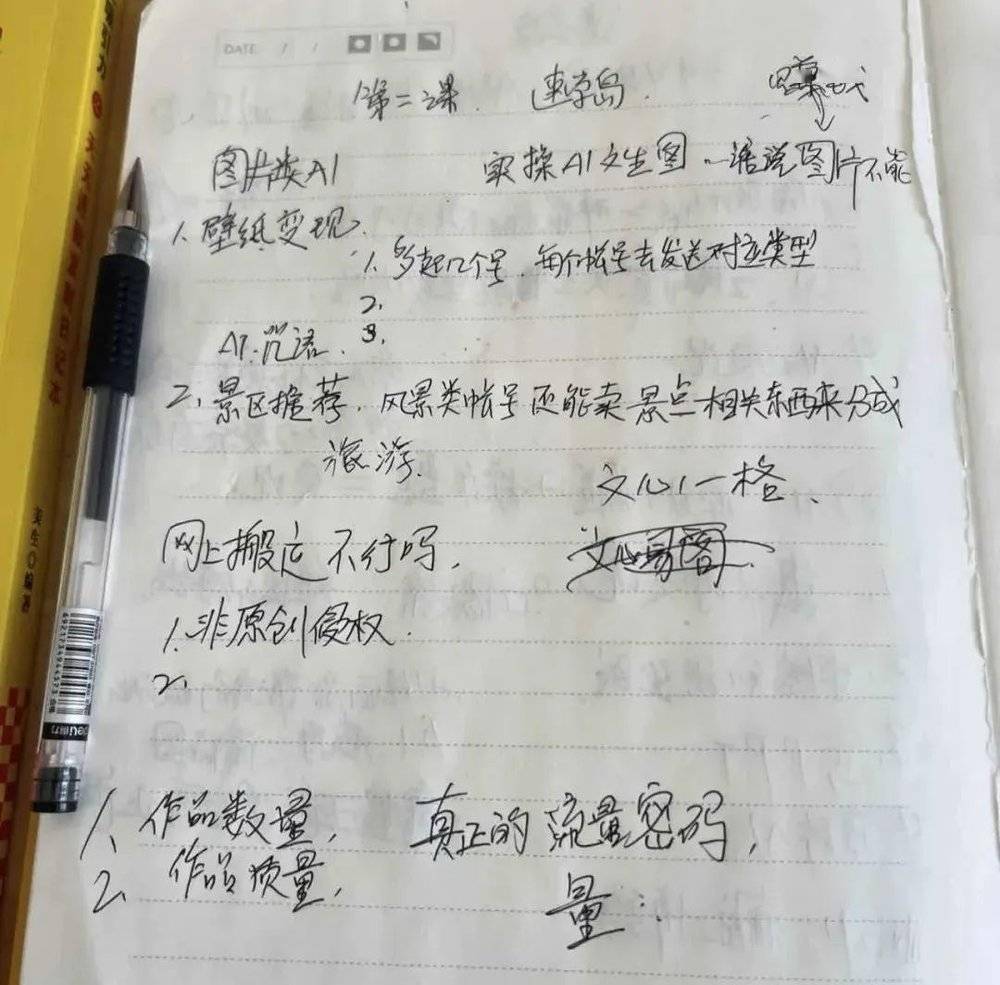 DATE / /
第二课. 速学岛.
图片类AI 实操AI文生图 图片不能
1.壁纸变现.
1.多起几个号,每个帐号去发送对应类型
2.
AI.咒语. 3.
2.景区推荐.风景类帐号还能卖景点相关东西来分成
旅游.
文心一格、
网上搬运不行吗,
1.非原创侵权.
2.
1、作品数量, 真正的流量密码,
2、作品质量,
量:.
编著
6921734944523
deli得力